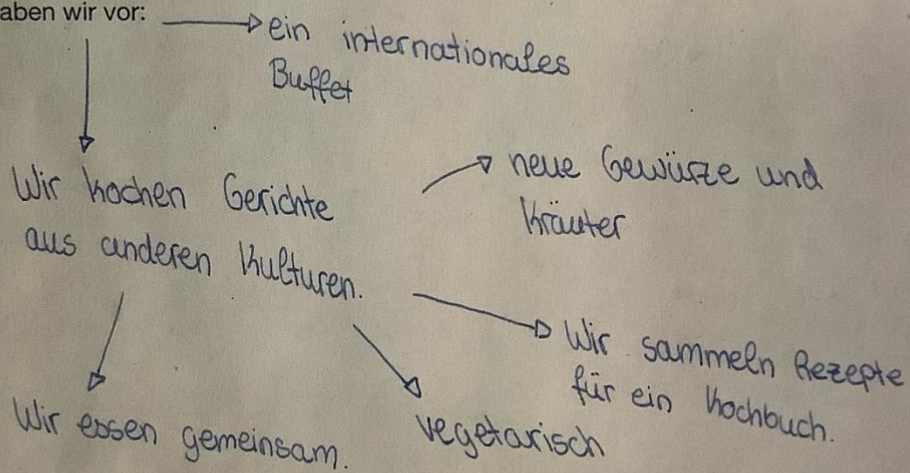 aben wir vor:
ein internationales
Buffet
Wir kochen Gerichte
aus anderen Kulturen.
neue Gewürze und
Kräuter
Wir sammeln Rezepte
für ein Kochbuch.
vegetarisch
Wir essen gemeinsam.